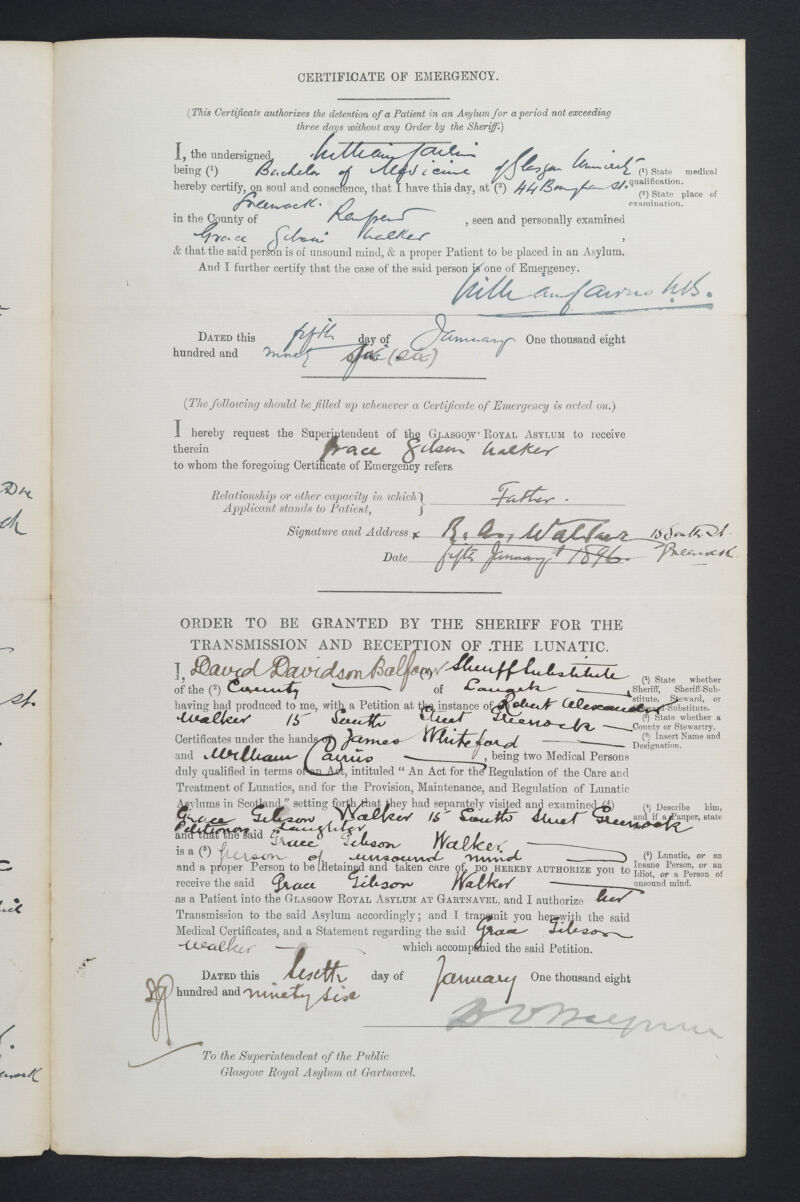 CERTIFICATE OF EMERGENCY.
(This Certificate authorizes the detention of a Patient in an Asylum for a period not exceeding
three days without any Order by the Sheriff.)
I, the undersigned, William Cairns
being (¹) Bachelor of Medicine of Glasgow University
(¹) State medical
qualification.
hereby certify, on soul and conscience, that I have this day, at (²) 44 St.
(²) State place of
examination.
Greenock.
in the County of Renfrew, seen and personally examined
Grace Gibson Walker,
& that the said person is of unsound mind, & a proper Patient to be placed in an Asylum.
And I further certify that the case of the said person is one of Emergency.
William Cairns M.B.
DATED this fifth day of January One thousand eight
hundred and ninety six (six)
(The following should be filled up whenever a Certificate of Emergency is acted on.)
I hereby request the Superintendent of the GLASGOW ROYAL ASYLUM to receive
therein Grace Gibson Walker
to whom the foregoing Certificate of Emergency refers
Relationship or other capacity in which
Applicant stands to Patient, } Father.
Signature and Address x R. A. Walker 15 South St
Greenock
Date fifth January 1896.
ORDER TO BE GRANTED BY THE SHERIFF FOR THE
TRANSMISSION AND RECEPTION OF THE LUNATIC.
I, David Davidson Balfour (¹) Sheriff Substitute
of the (²) County of Lanark
(¹) State whether
Sheriff, Sheriff-Sub-
stitute, Steward, or
Steward-Substitute.
having had produced to me, with a Petition at the instance of (³) Robert Alexander
Walker 15 South Street Greenock
(²) State whether a
County or Stewartry.
(³) Insert Name and
Designation.
Certificates under the hands of James Whiteford
and William Cairns, being two Medical Persons
duly qualified in terms of an Act, intituled “An Act for the Regulation of the Care and
Treatment of Lunatics, and for the Provision, Maintenance, and Regulation of Lunatic
Asylums in Scotland,” setting forth that they had separately visited and examined (⁴)
(⁴) Describe him,
and if a Pauper, state
Grace Gibson Walker 15 South Street Greenock
Petitioners daughter
and that the said Grace Gibson Walker
is a (⁵) person of unsound mind
(⁵) Lunatic, or an
Insane Person, or an
Idiot, or a Person of
unsound mind.
and a proper Person to be detained and taken care of, DO HEREBY AUTHORIZE you to
receive the said Grace Gibson Walker
as a Patient into the GLASGOW ROYAL ASYLUM AT GARTNAVEL, and I authorize her
Transmission to the said Asylum accordingly; and I transmit you herewith the said
Medical Certificates, and a Statement regarding the said Grace Gibson
Walker which accompanied the said Petition.
DATED this Sixth day of January One thousand eight
hundred and ninety six
To the Superintendent of the Public
Glasgow Royal Asylum at Gartnavel.